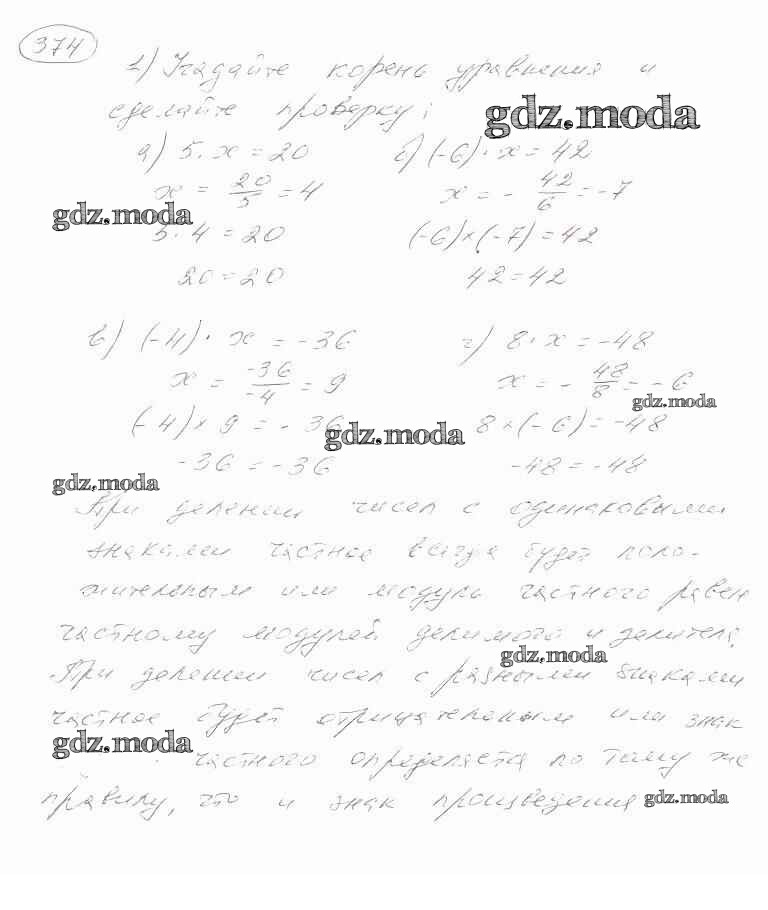 374
1) Угадайте корень уравнения и
сделайте проверку:
gdz.moda
а) 5·x = 20 б) (-6)·x = 42
x = 20/5 = 4 x = - 42/6 = -7
gdz.moda
5·4 = 20 (-6)×(-7) = 42
20 = 20 42 = 42
в) (-4)· x = -36 г) 8·x = -48
x = -36/-4 = 9 x = - 48/8 = -6
gdz.moda
(-4)× 9 = -36 8×(-6) = -48
gdz.moda
-36 = -36 -48 = -48
gdz.moda
При делении чисел с одинаковыми
знаками частное всегда будет поло-
жительным или модуль частного равен
частному модулей делимого и делителя.
gdz.moda
При делении чисел с разными знаками
частное будет отрицательным или знак
gdz.moda
частного определяется по тому же
правилу, что и знак произведения
gdz.moda